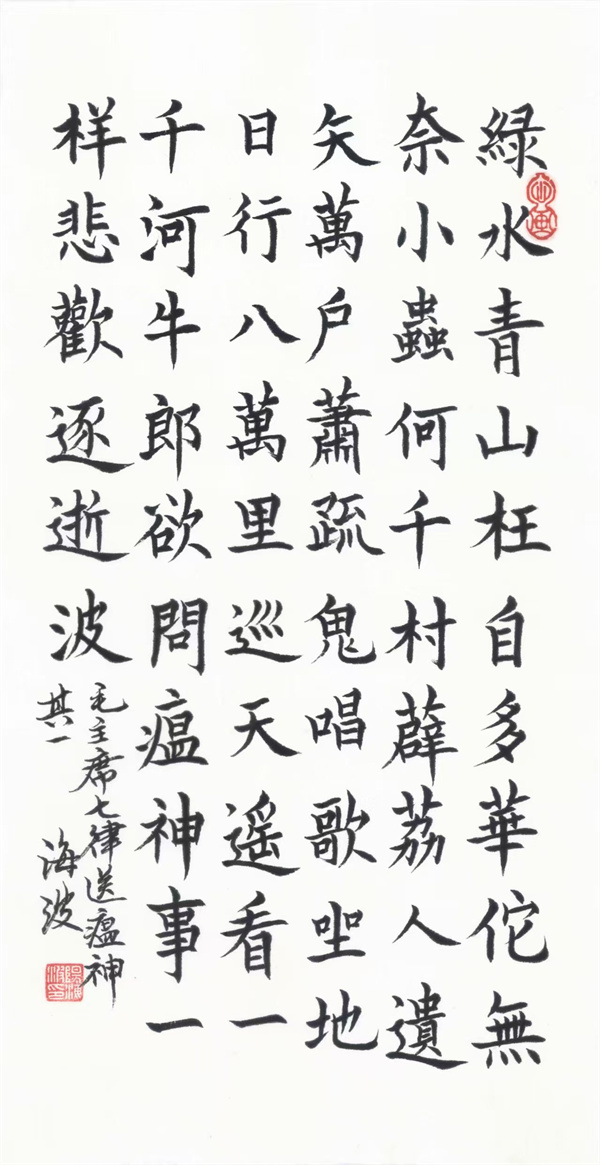 緑水青山枉自多華佗無
奈小蟲何千村薜荔人遺
矢萬户蕭疏鬼唱歌坐地
日行八萬里巡天遥看一
千河牛郎欲問瘟神事一
样悲歡逐逝波
毛主席七律送瘟神
其一
海波